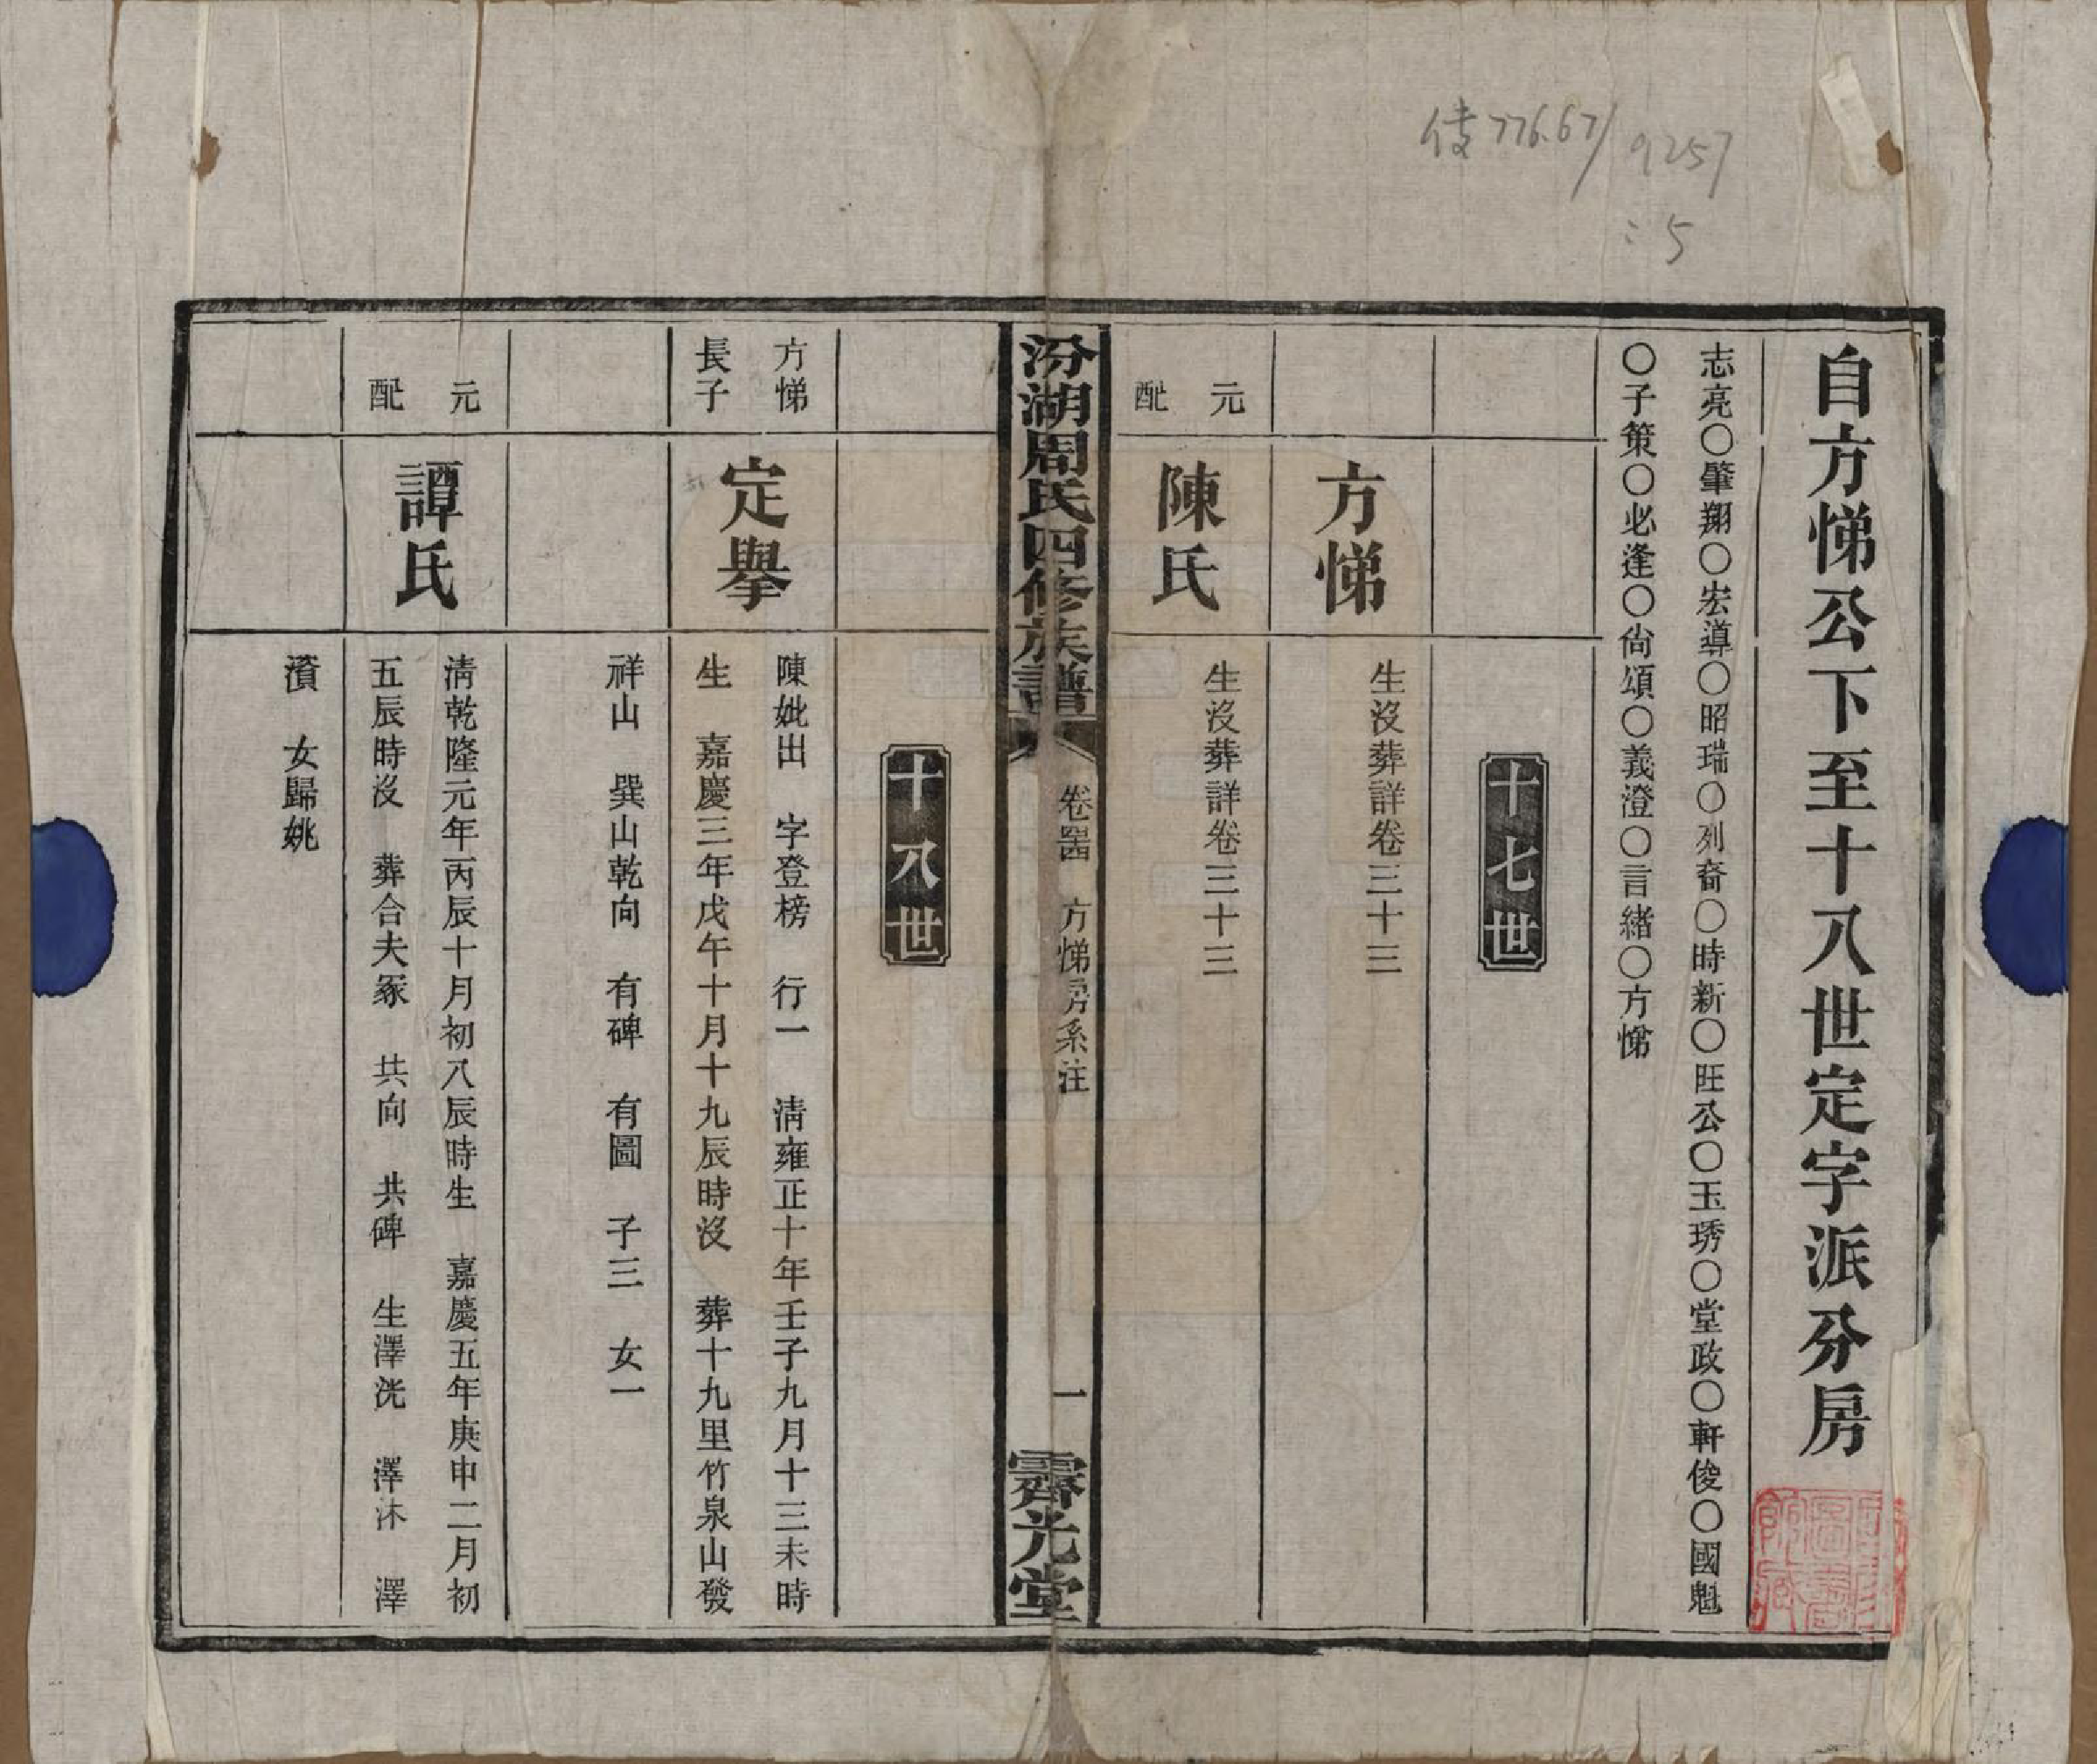 傳776.67/9257
:5
自方悌公下至十八世定字派分房
志亮〇肇翔〇宏導〇昭瑞〇列裔〇時新〇旺公〇玉琇〇堂政〇軒俊〇國魁
〇子策〇必逢〇尙頌〇義澄〇言緒〇方悌
十七世
方悌
生沒葬詳卷三十三
元配
陳氏
生沒葬詳卷三十三
汾湖周氏四修族譜
卷四 方悌房系注
一
霽光堂
十八世
方悌長子
定擧
陳妣出 字登榜 行一 淸雍正十年壬子九月十三未時
生 嘉慶三年戊午十月十九辰時沒 葬十九里竹泉山發
祥山 巽山乾向 有碑 有圖 子三 女一
元配
譚氏
淸乾隆元年丙辰十月初八辰時生 嘉慶五年庚申二月初
五辰時沒 葬合夫冢 共向 共碑 生澤洸 澤沐 澤
濱 女歸姚